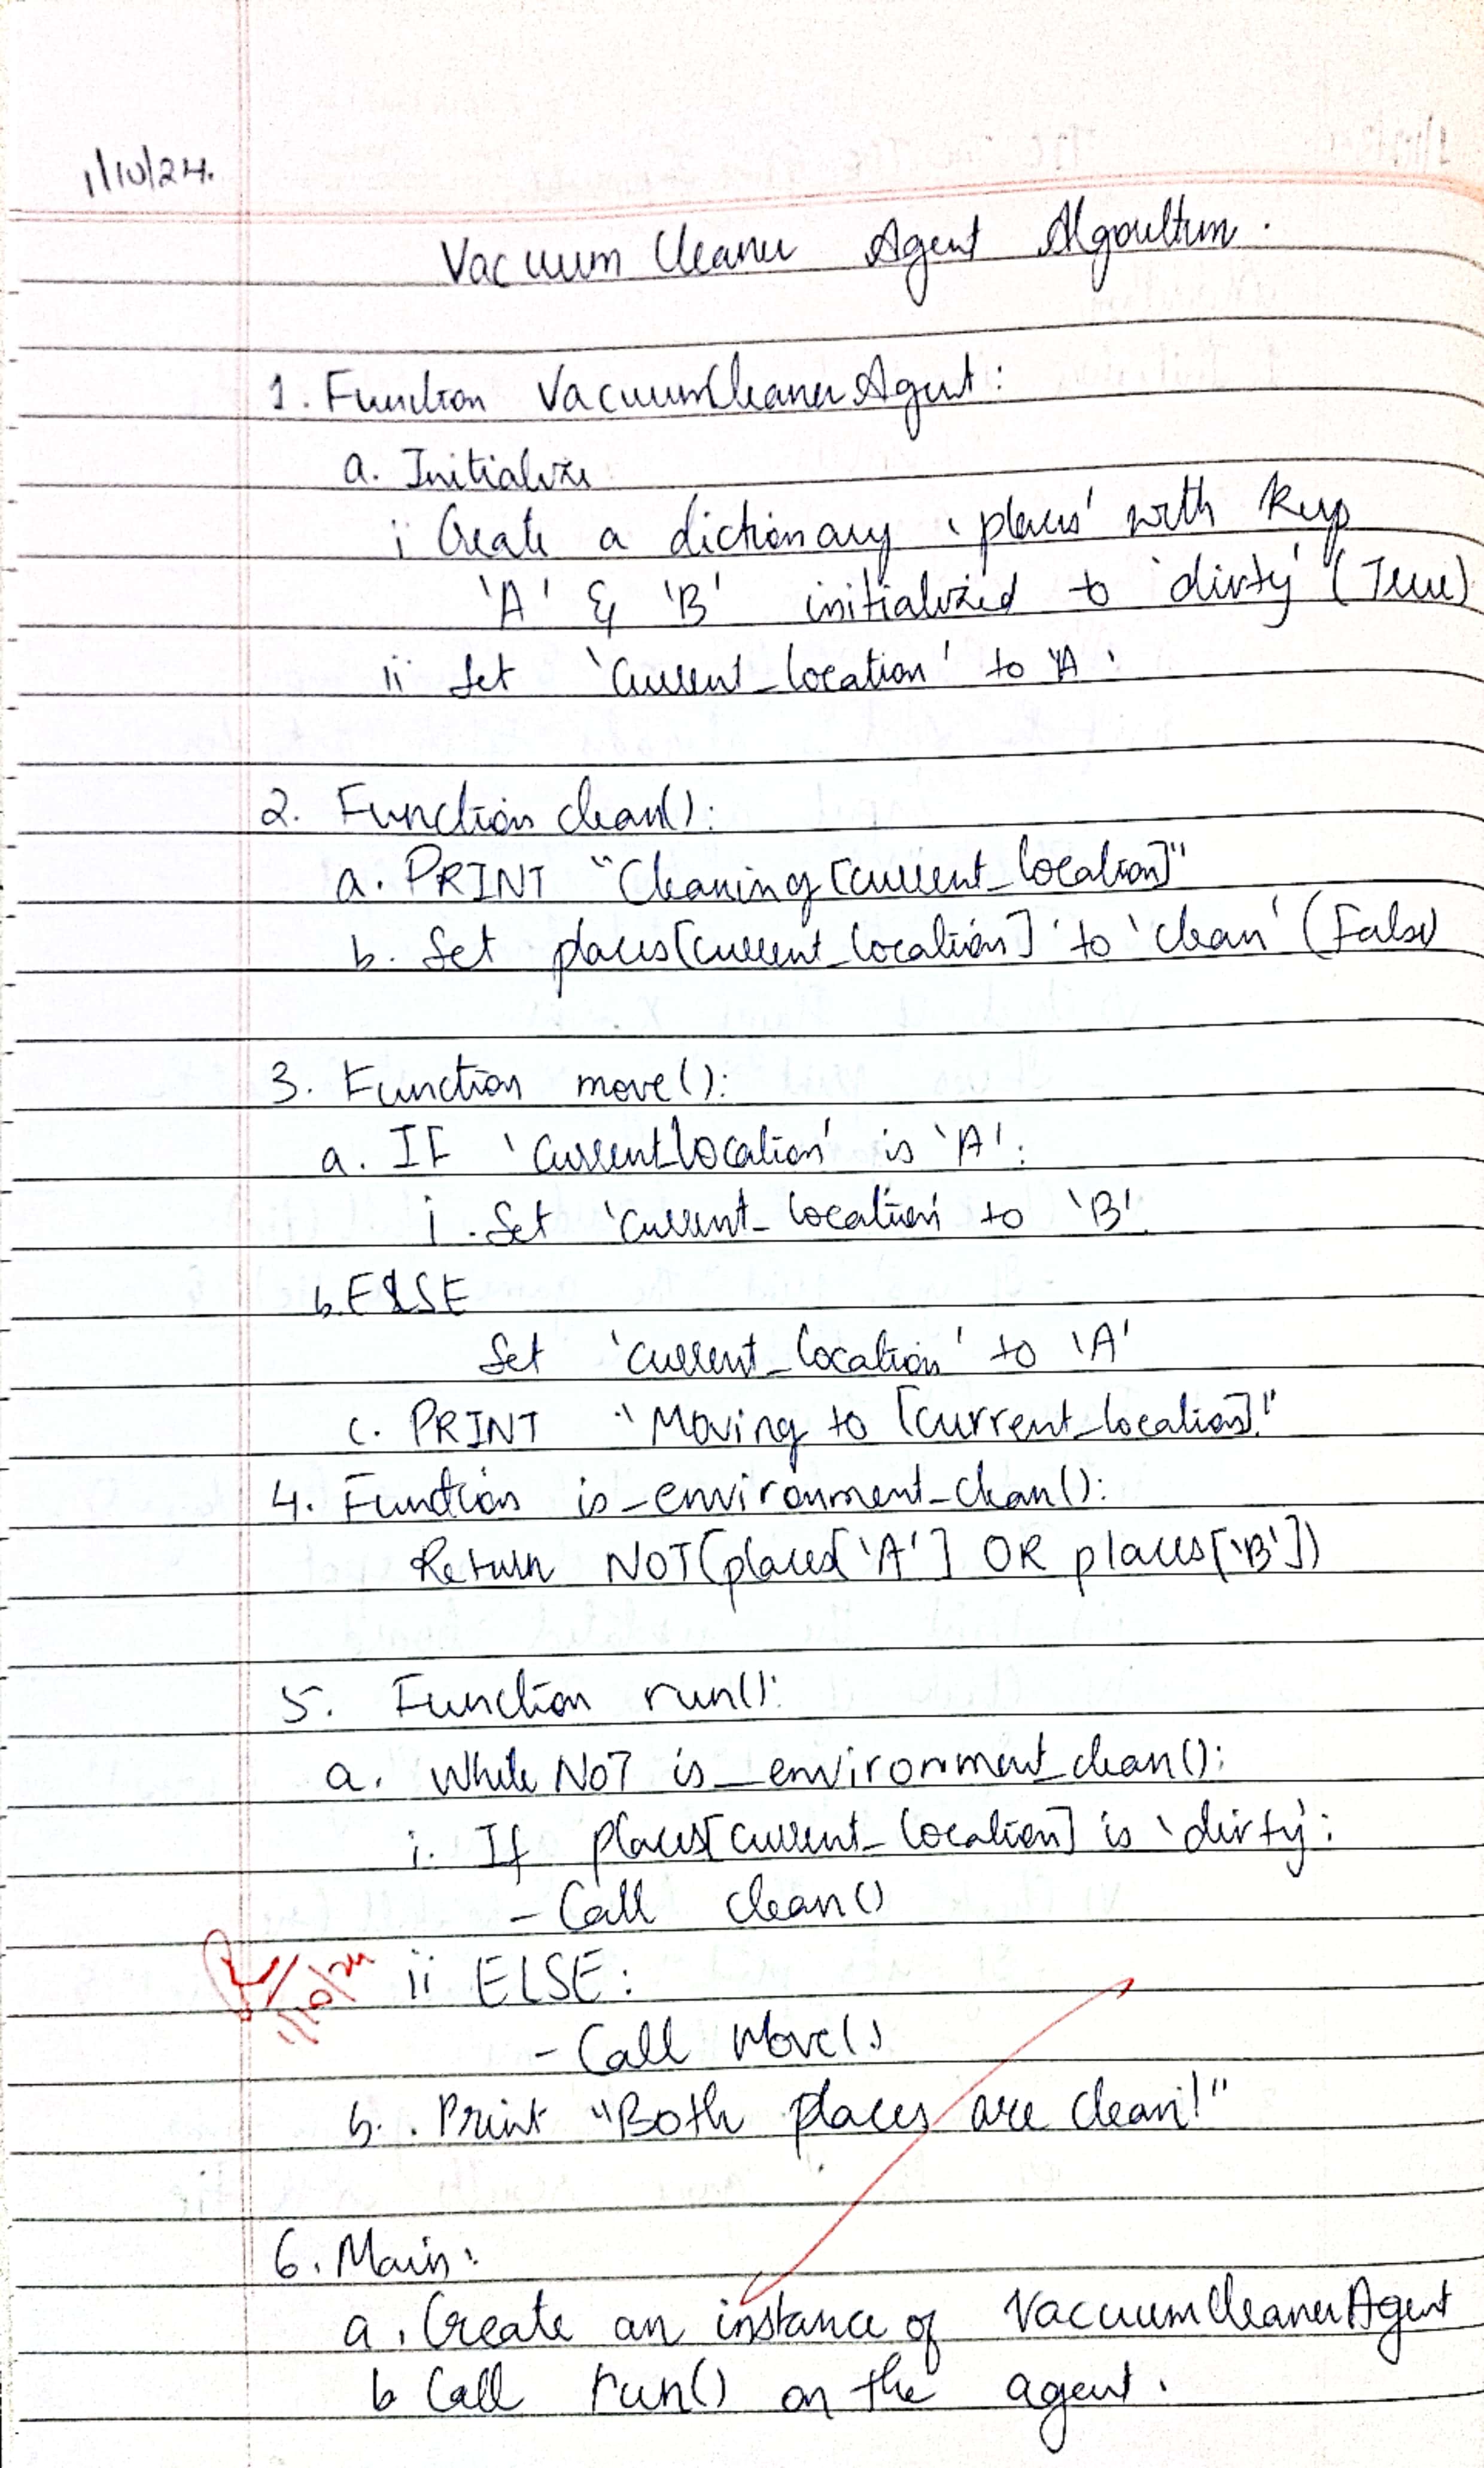 1/10/24.
Vacuum Cleaner Agent Algorithm.
1. Function VacuumCleanerAgent:
a. Initialize
i Create a dictionary 'places' with keys
'A' & 'B' initialized to 'dirty' (True)
ii Set 'current_location' to 'A'
2. Function clean():
a. PRINT "Cleaning [current_location]"
b. Set places[current_location] to 'clean' (False)
3. Function move():
a. IF 'current_location' is 'A':
i. Set 'current_location' to 'B'.
b. ELSE
Set 'current_location' to 'A'
c. PRINT "Moving to [current_location]."
4. Function is_environment_clean():
Return NOT(places['A'] OR places['B'])
5. Function run():
a. While NOT is_environment_clean():
i. If places[current_location] is 'dirty':
- Call clean()
1/10/24 ii ELSE:
- Call move()
b. Print "Both places are clean!"
6. Main:
a. Create an instance of VacuumCleanerAgent
b Call run() on the agent.